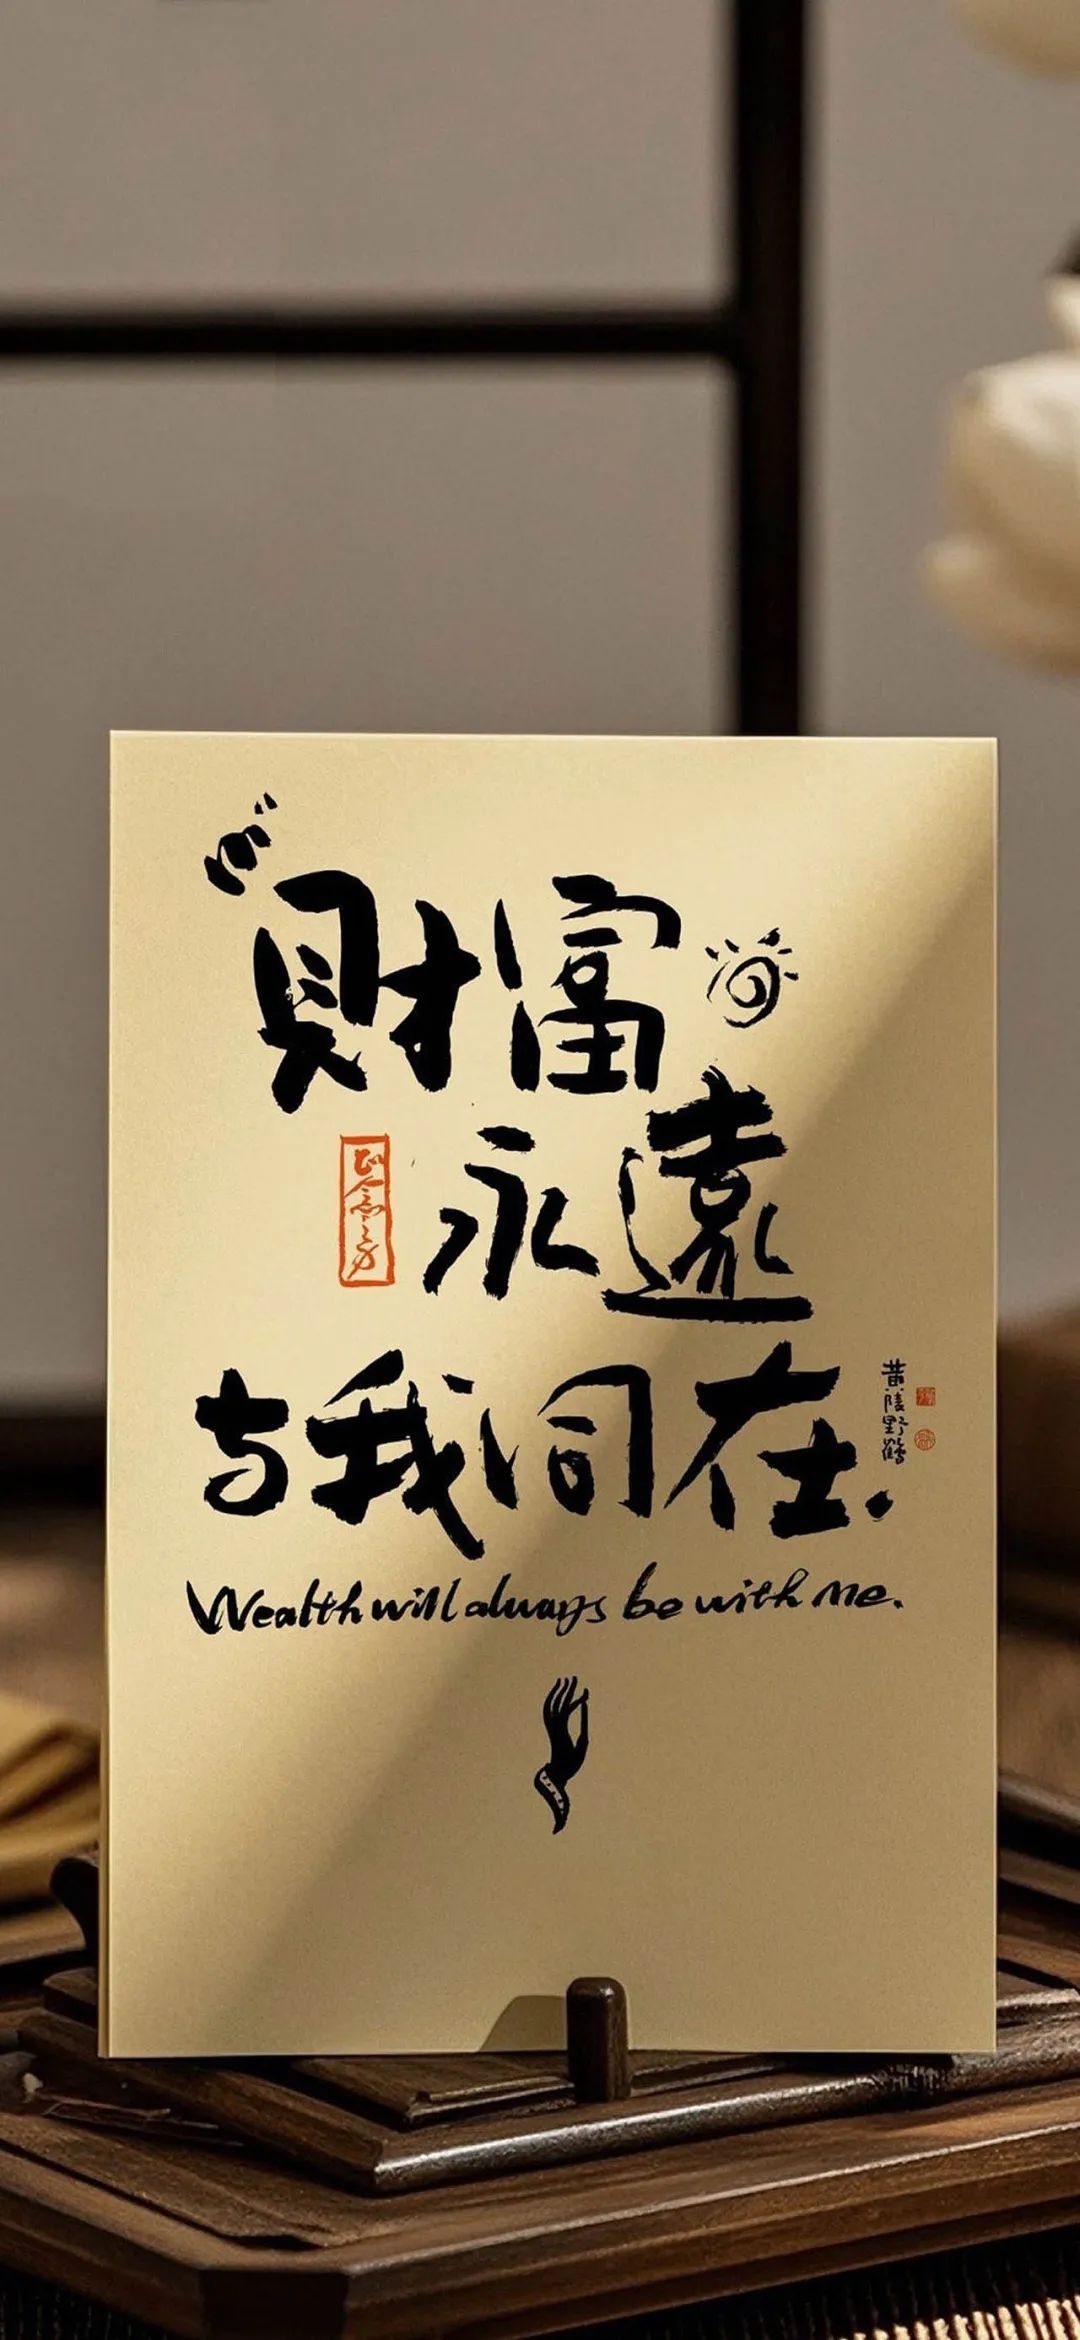 財富
永遠
与我同在
黄陵野鶴
Wealth will always be with me.